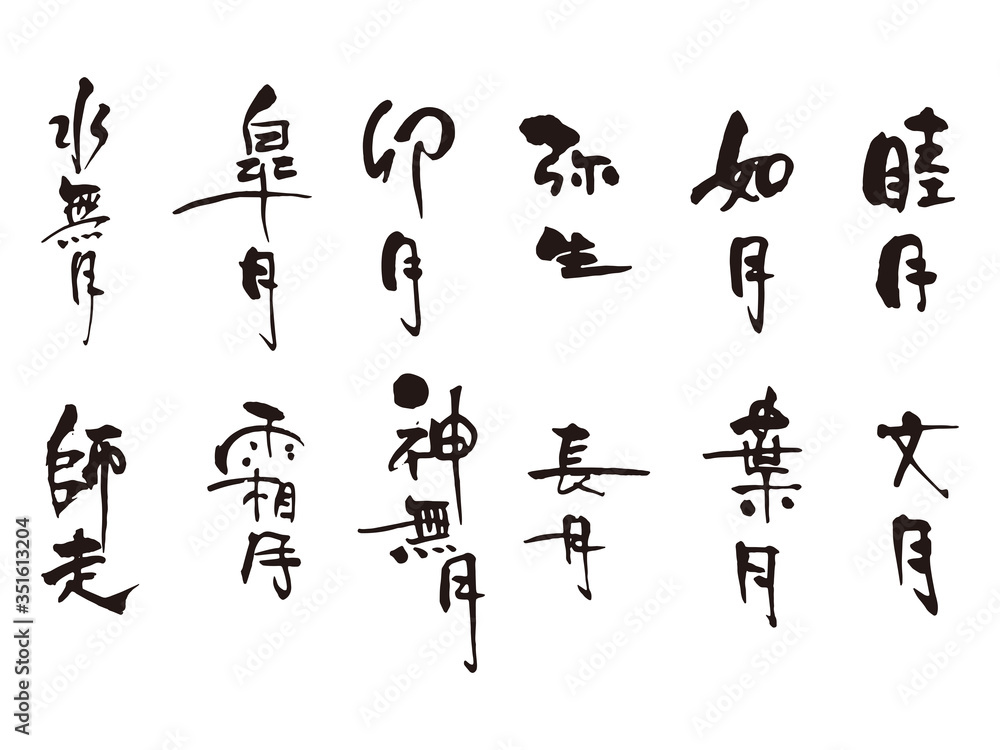 睦月
如月
弥生
卯月
皐月
水無月
文月
葉月
長月
神無月
霜月
師走
Adobe Stock | #351613204